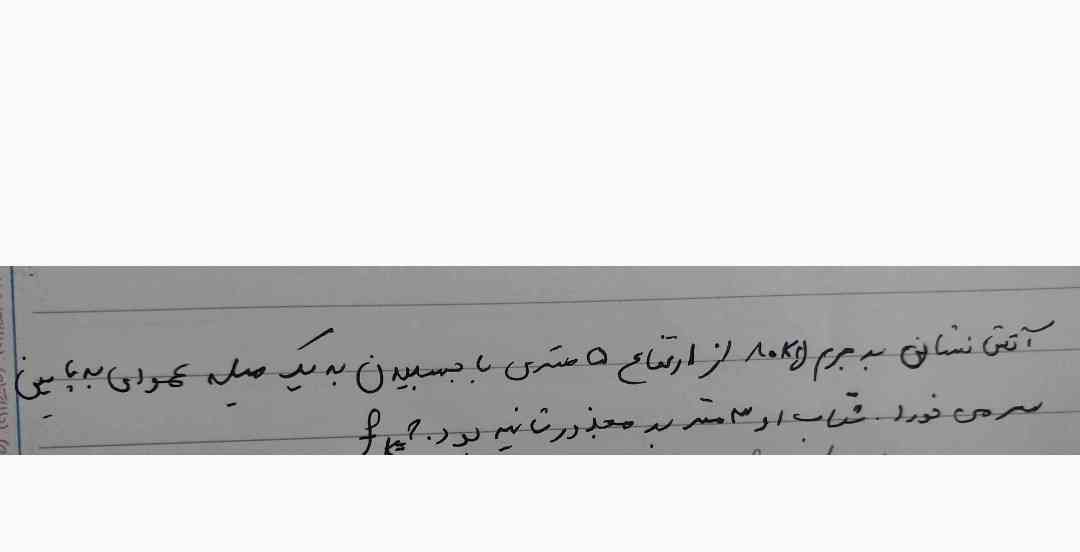 آتش نشانی به جرم ۸۰kg از ارتفاع ۵ متری با چسبیدن به یک میله عمودی به پایین
سر می خورد. شتاب او ۳ متر بر مجذور ثانیه بود. fk=?